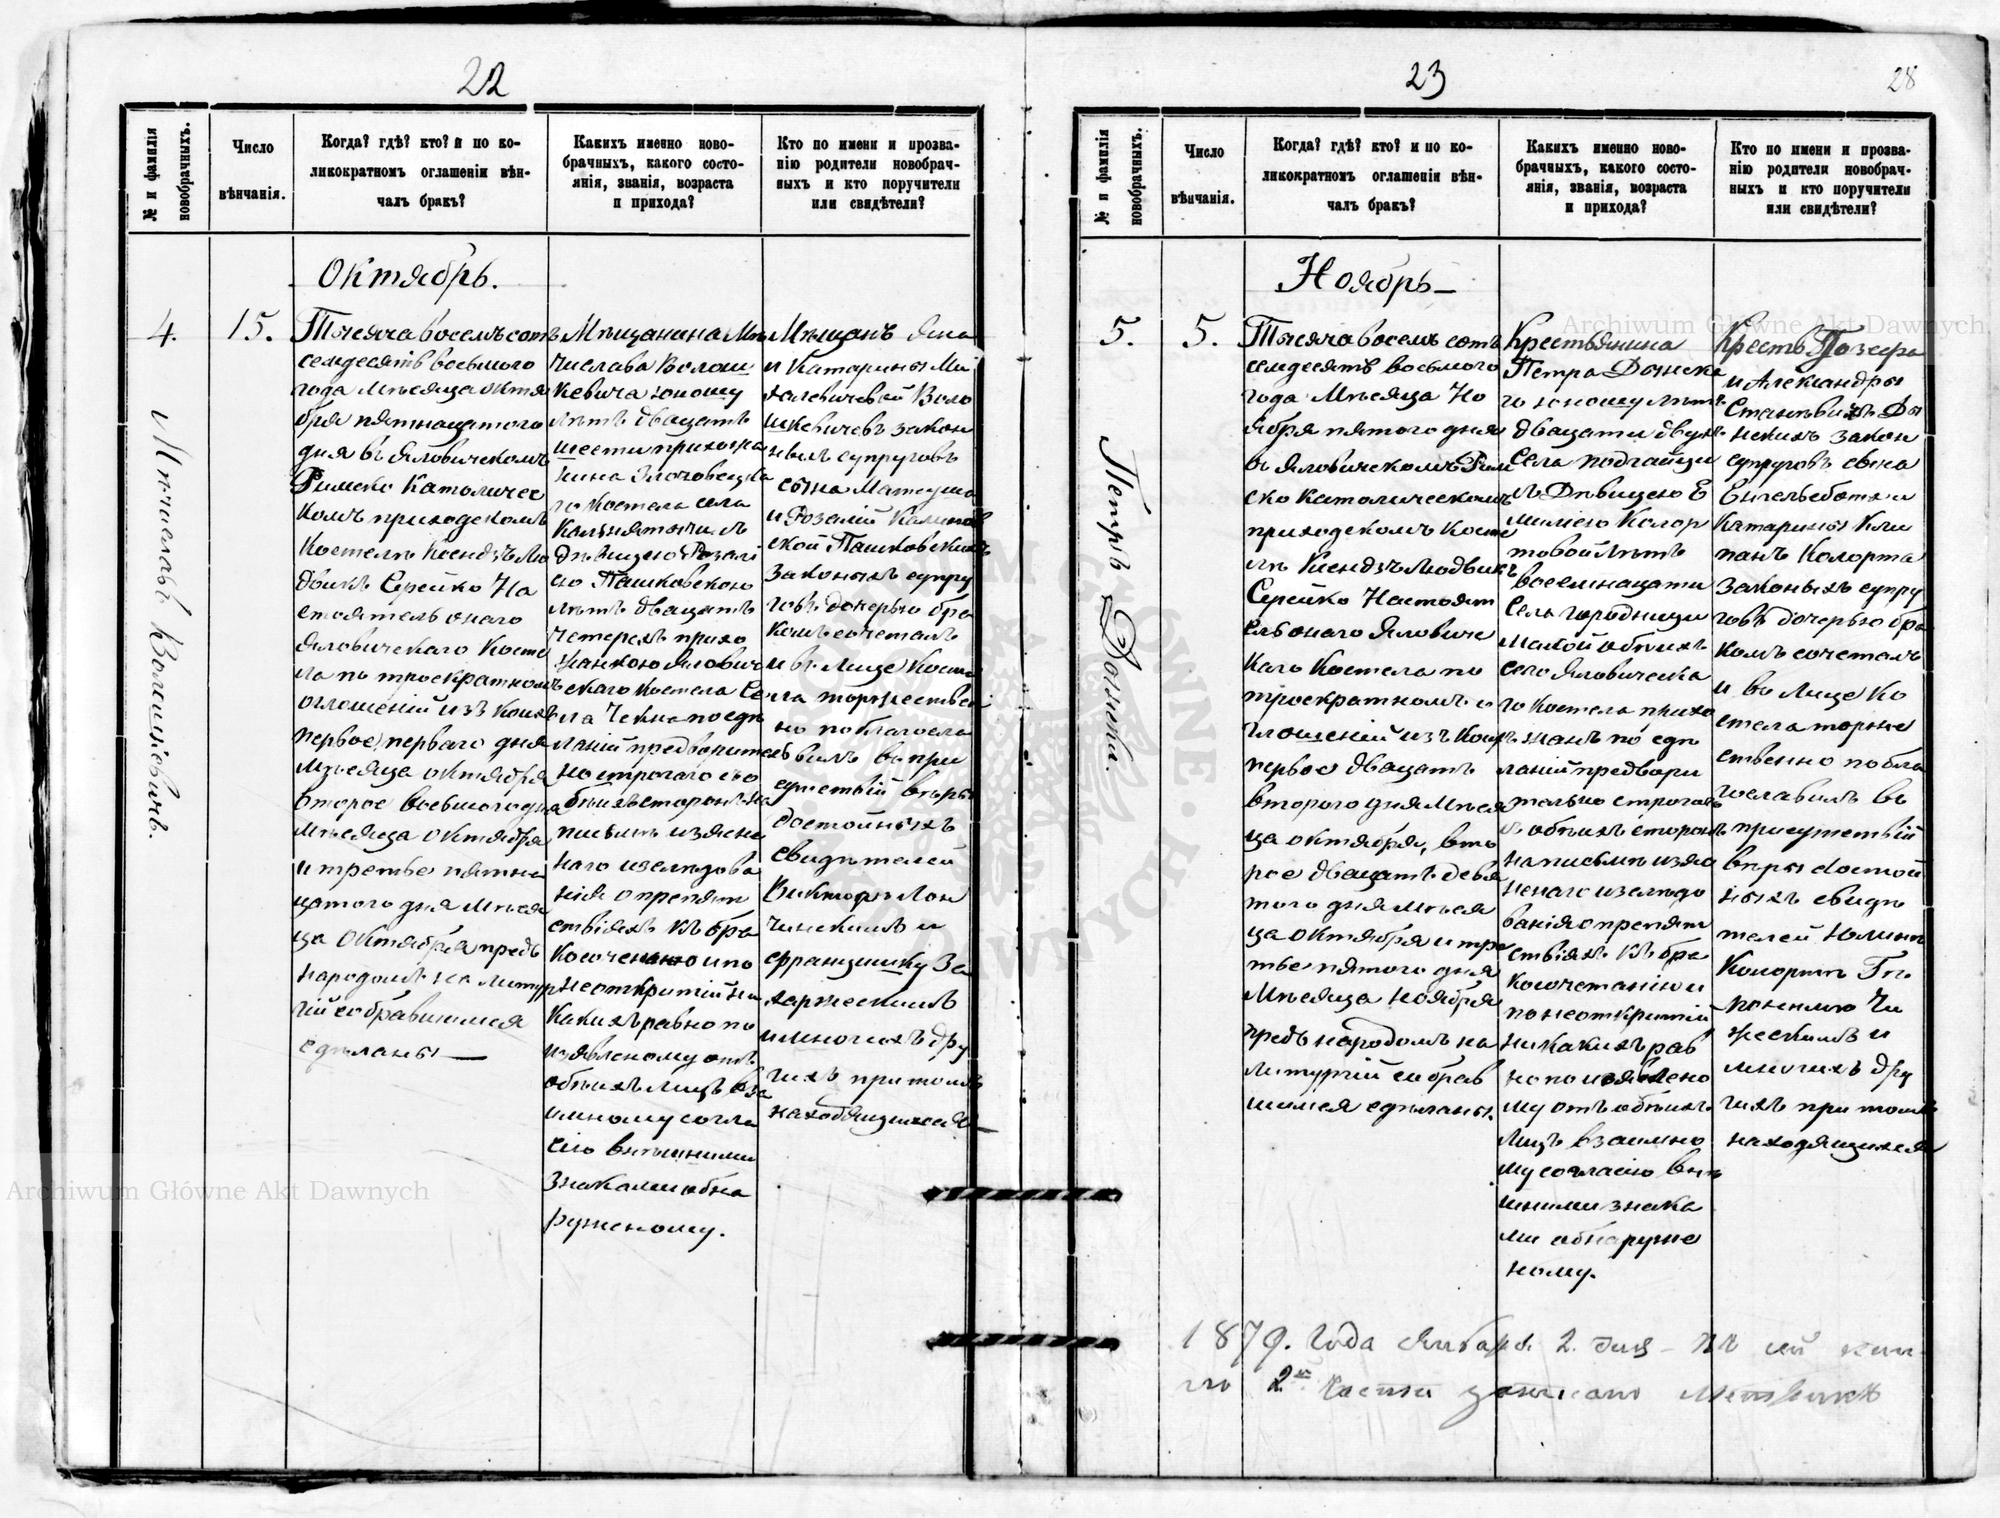 22
№ и фамилія новобрачныхъ.
Число вѣнчанія.
Когда? гдѣ? кто? и по ко-
ликократномъ оглашеніи вѣн-
чалъ бракъ?
Какихъ именно ново-
брачныхъ, какого состо-
янія, званія, возраста
и прихода?
Кто по имени и прозва-
нію родители новобрач-
ныхъ и кто поручители
или свидѣтели?
4.
Мѣчиславъ Волошкевичъ.
15.
Октябрь.
Тысяча восемьсотъ
семдесятъ восьмого
года мѣсяца октя
бря пятнацатого
дня въ Яловическомъ
Римско Католичес
комъ приходскомъ
Костелѣ Ксендзъ Лю
двикъ Серейко На
стоятель онаго
Яловичскаго Косте
ла по троекратномъ
оглошеній изъ коихъ
первое, первого дня
Мѣсяца октября
второе восьмого дня
мѣсяца октября
и третье пятна
цатого дня мѣся
ца октября предъ
народомъ на литур
гій собравшимся
сдѣланы —
Мѣщанина Мѣ
числава Волош
кевича юношу
лѣтъ двацать
шести прихожа
нина
го Костела села
съ
дѣвицею Розалі
ею Пашковскою
лѣтъ двацать
четерехъ прихо
жанкою Ялович
скаго Костела Се
ла Чекна по сдѣ
ланій предворитель
но строгаго съ о
бѣихъ сторонъ на
письмѣ изясне
наго изслѣдова
нія о препят
ствіяхъ къ бра
косочетанію и по
неоткритій ни
какихъ равно по
изявленому отъ
обѣихъ лицъ вза
имному согла
сію внѣшними
знаками обна
руженому.
Мѣщанъ Яна
и Катарины Ми
халевичевой Воло
шкевичевъ закон
ныхъ супруговъ
сына Матеуша
и Розалій Калинов
ской Пашковскихъ
законыхъ супру
говъ дочерью бра
комъ сочеталъ
и въ лице Косте
ла торжествен
но поблагосла
вилъ въ при
сутствій вѣры
достойныхъ
свидѣтелей
Виктора Лон
чинскимъ и
францишку За
харжескимъ
и многихъ дру
гихъ при томъ
находящихся —
23
28
№ и фамилія новобрачныхъ.
Число вѣнчанія.
Когда? гдѣ? кто? и по ко-
ликократномъ оглашеніи вѣн-
чалъ бракъ?
Какихъ именно ново-
брачныхъ, какого состо-
янія, званія, возраста
и прихода?
Кто по имени и прозва-
нію родители новобрач-
ныхъ и кто поручители
или свидѣтели?
5.
Петръ
5.
Ноябрь —
Тысяча восемъ сотъ
семдесятъ восьмого
года Мѣсяца Но
ября пятого дня
въ Яловическомъ Рим
ско Католическомъ
приходскомъ Косте
лѣ Ксендзъ Людвикъ
Серейко Настоят
ель онаго Яловичс
каго Костела по
троекратномъ о
глошеній изъ коихъ
первое двацать
второго дня Мѣся
ца октября, вто
рое двацать девя
того дня мѣся
ца октября и тре
тье пятого дня
Мѣсяца ноября
предъ народомъ на
литургій собрав
шимся сдѣланы.
Крестьянина
Петра Дынска
го юношу лѣтъ
двацати двухъ
Села Подгайци
съ Дѣвицею Е
милею Колор
товой лѣтъ
восемнацати
Села Городници
малой обѣихъ
сего Яловическа
го Костела прихо
жанъ по сдѣ
ланій предвори
тельно строгаго
съ обѣихъ сторонъ
на письмѣ изяс
ненаго изслѣдо
ванія о препят
ствіяхъ къ бра
косочетанію и
по неоткритій
никакихъ рав
но по изявлено
му отъ обѣихъ
лицъ взаимно
му согласію внѣ
шними знака
ми обнаруже
ному.
Крестьянъ
и Александры
Станѣвичъ Ды
нскихъ закон
супруговъ сына
и
Катарины Кли
панъ Колорта
законыхъ супру
говъ дочерью бра
комъ сочеталъ
и въ лице Ко
стела торже
ственно побла
гославилъ въ
присутствій
вѣры достой
ныхъ свидѣ
телей
Колортъ
и
многихъ дру
гихъ при томъ
находящихся
1879. года Января 2. дня - въ сей кни-
гѣ 2й части записано метрикъ
Archiwum Główne Akt Dawnych
Archiwum Główne Akt Dawnych